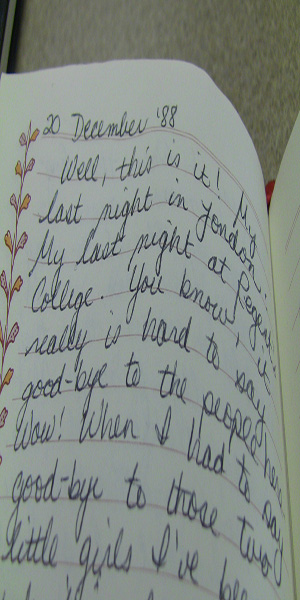 20 December '88
Well, this is it! My
last night in London.
My last night at Regent
College. You know, it
really is hard to say
good-bye to the people here
Wow! When I had to say
good-bye to those two
little girls I've been